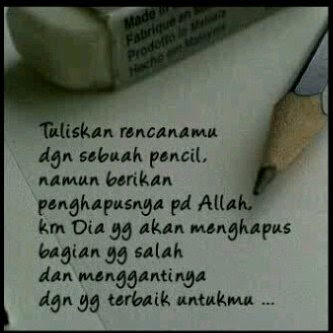 Made in
Fabriqué en
Prodotto in Malaysia
Hecho en Malaysia
Tuliskan rencanamu
dgn sebuah pencil,
namun berikan
penghapusnya pd Allah,
krn Dia yg akan menghapus
bagian yg salah
dan menggantinya
dgn yg terbaik untukmu ...